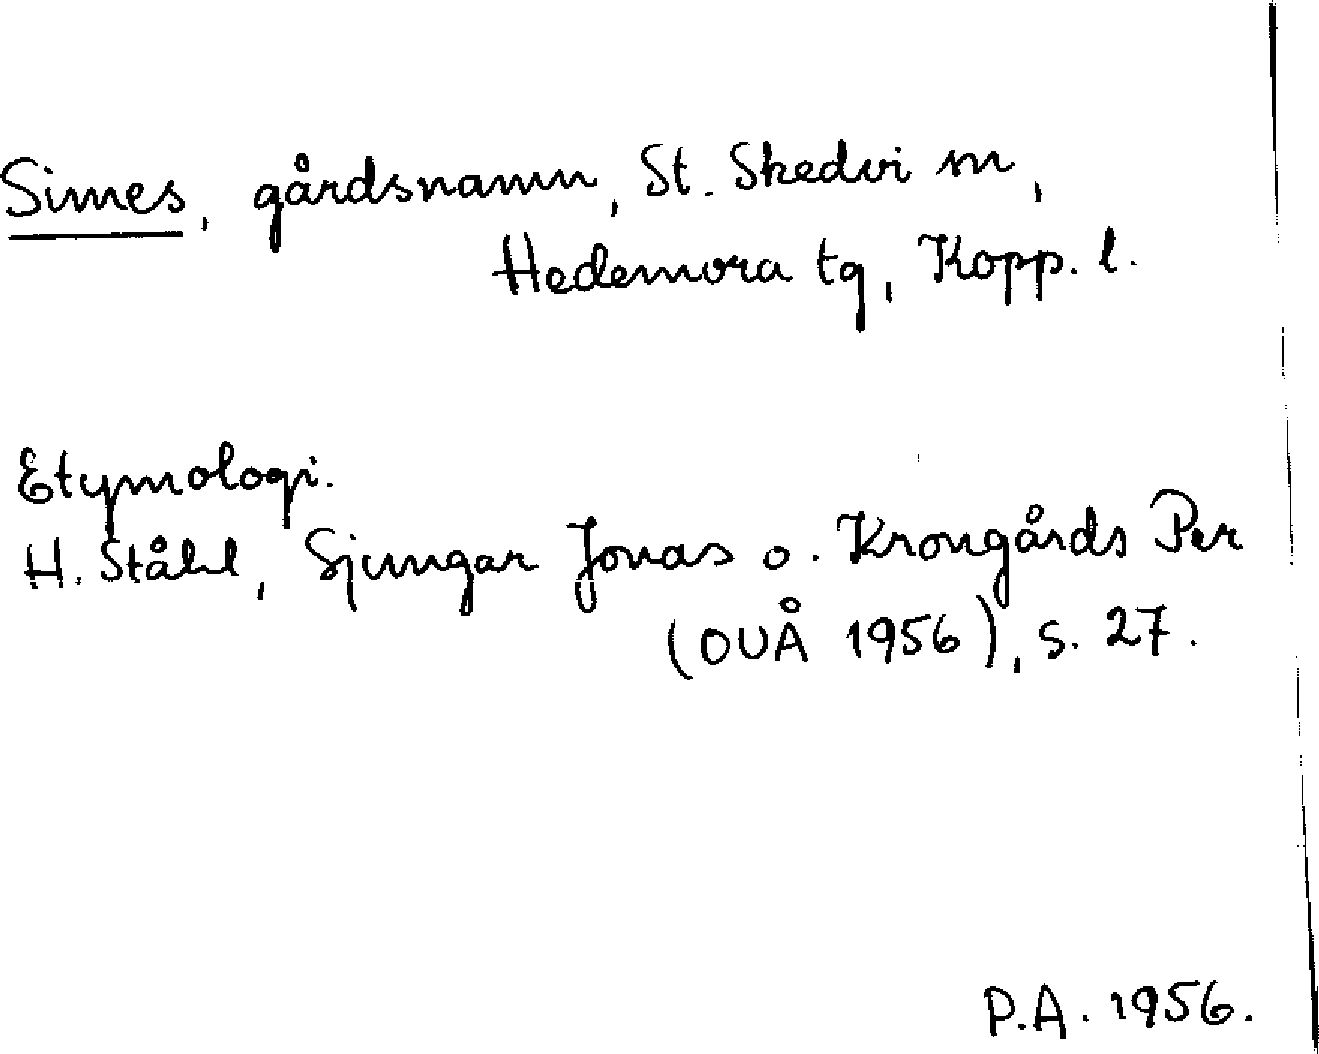 Simes, gårdsnamn, St. Skedvi sn,
Hedemora tg, Kopp. l.
Etymologi.
H. Ståhl, Sjungar Jonas o. Krongårds Per
(OUÅ 1956), s. 27.
P.A. 1956.